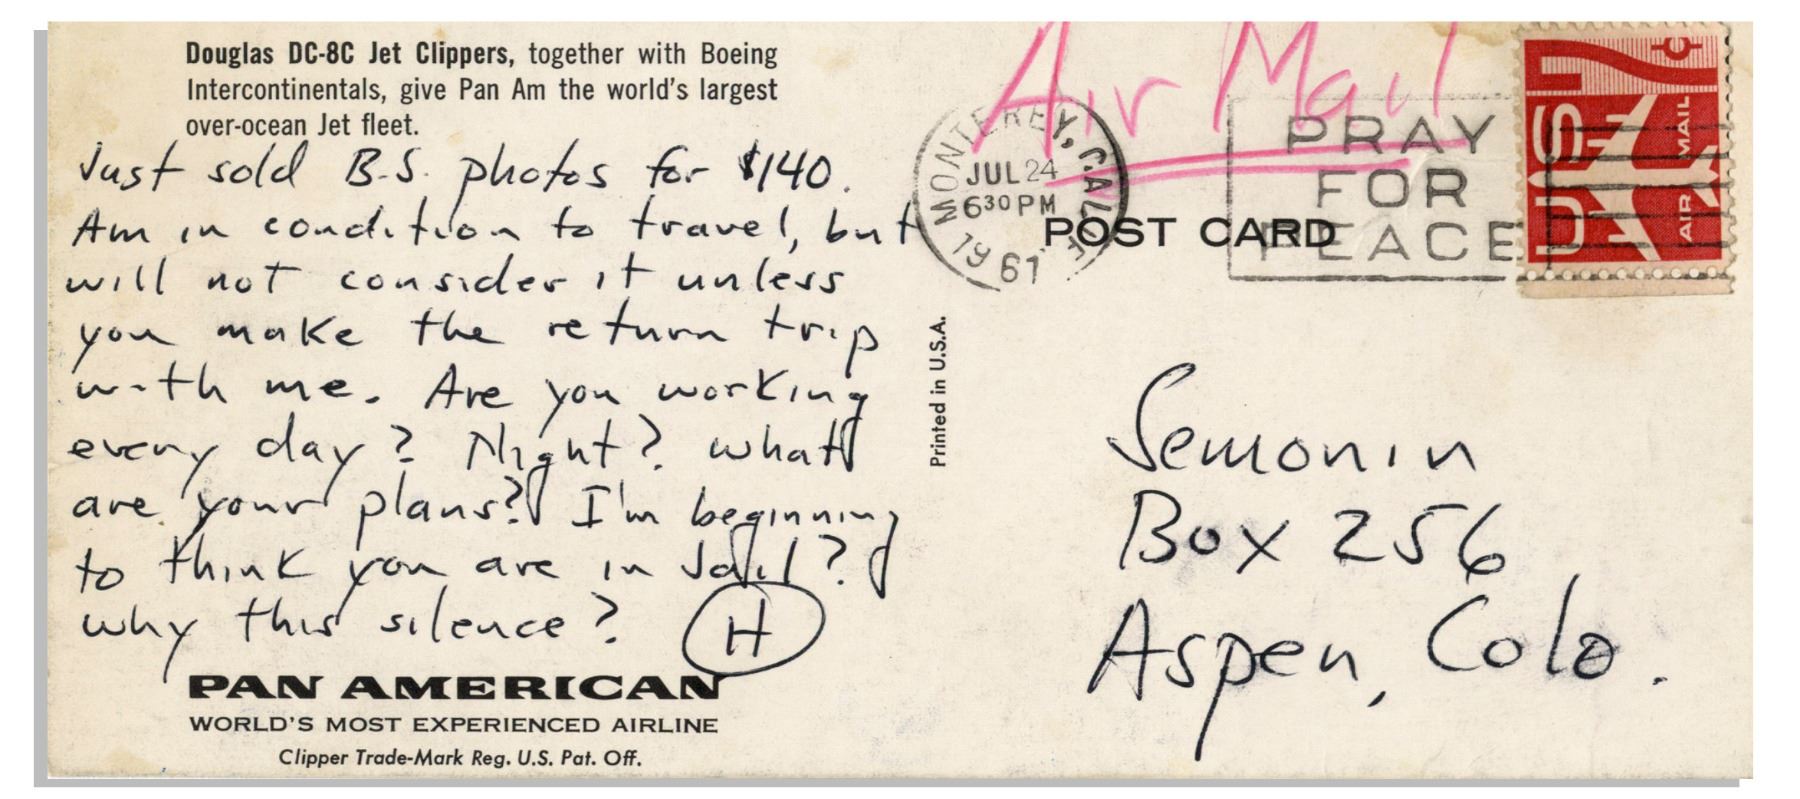 Douglas DC-8C Jet Clippers, together with Boeing
Intercontinentals, give Pan Am the world's largest
over-ocean Jet fleet.
Just sold B.S. photos for $140.
Am in condition to travel, but
will not consider it unless
you make the return trip
with me. Are you working
every day? Night? what
are your plans? I'm beginning
to think you are in Jail?
why this silence? H
PAN AMERICAN
WORLD'S MOST EXPERIENCED AIRLINE
Clipper Trade-Mark Reg. U.S. Pat. Off.
Printed in U.S.A.
Air Mail
MONTEREY, CALIF.
JUL 24
6 30 PM
1961
PRAY
FOR
PEACE
POST CARD
US 7¢
AIR MAIL
AIR MAIL
Semonin
Box 256
Aspen, Colo.